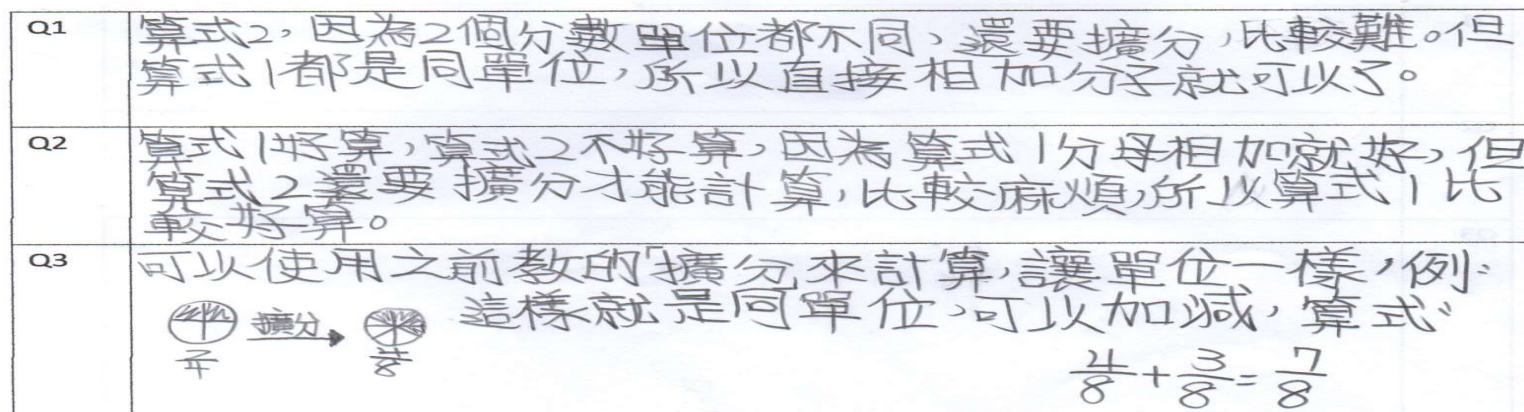 Q1
算式2,因為2個分數單位都不同,還要擴分,比較難。但
算式1都是同單位,所以直接相加分子就可以了。
Q2
算式1好算,算式2不好算,因為算式1分母相加就好,但
算式2還要擴分才能計算,比較麻煩,所以算式1比
較好算。
Q3
可以使用之前教的「擴分」來計算,讓單位一樣,例:
擴分
這樣就是同單位,可以加減,算式:
4/8 + 3/8 = 7/8